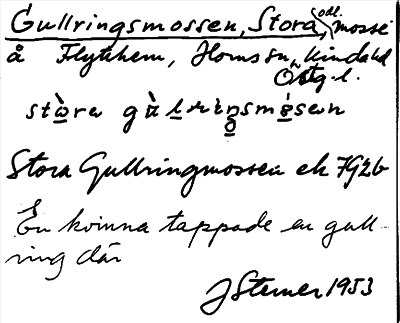 Gullringsmossen, Stora, odl. mosse
å Flythem, Horns sn, Kinda hd
Östg. l.
stòra gùlrıŋsmòsen
Stora Gullringmossen ek 7G2b
En kvinna tappade en gull
ring där
J Sterner 1953